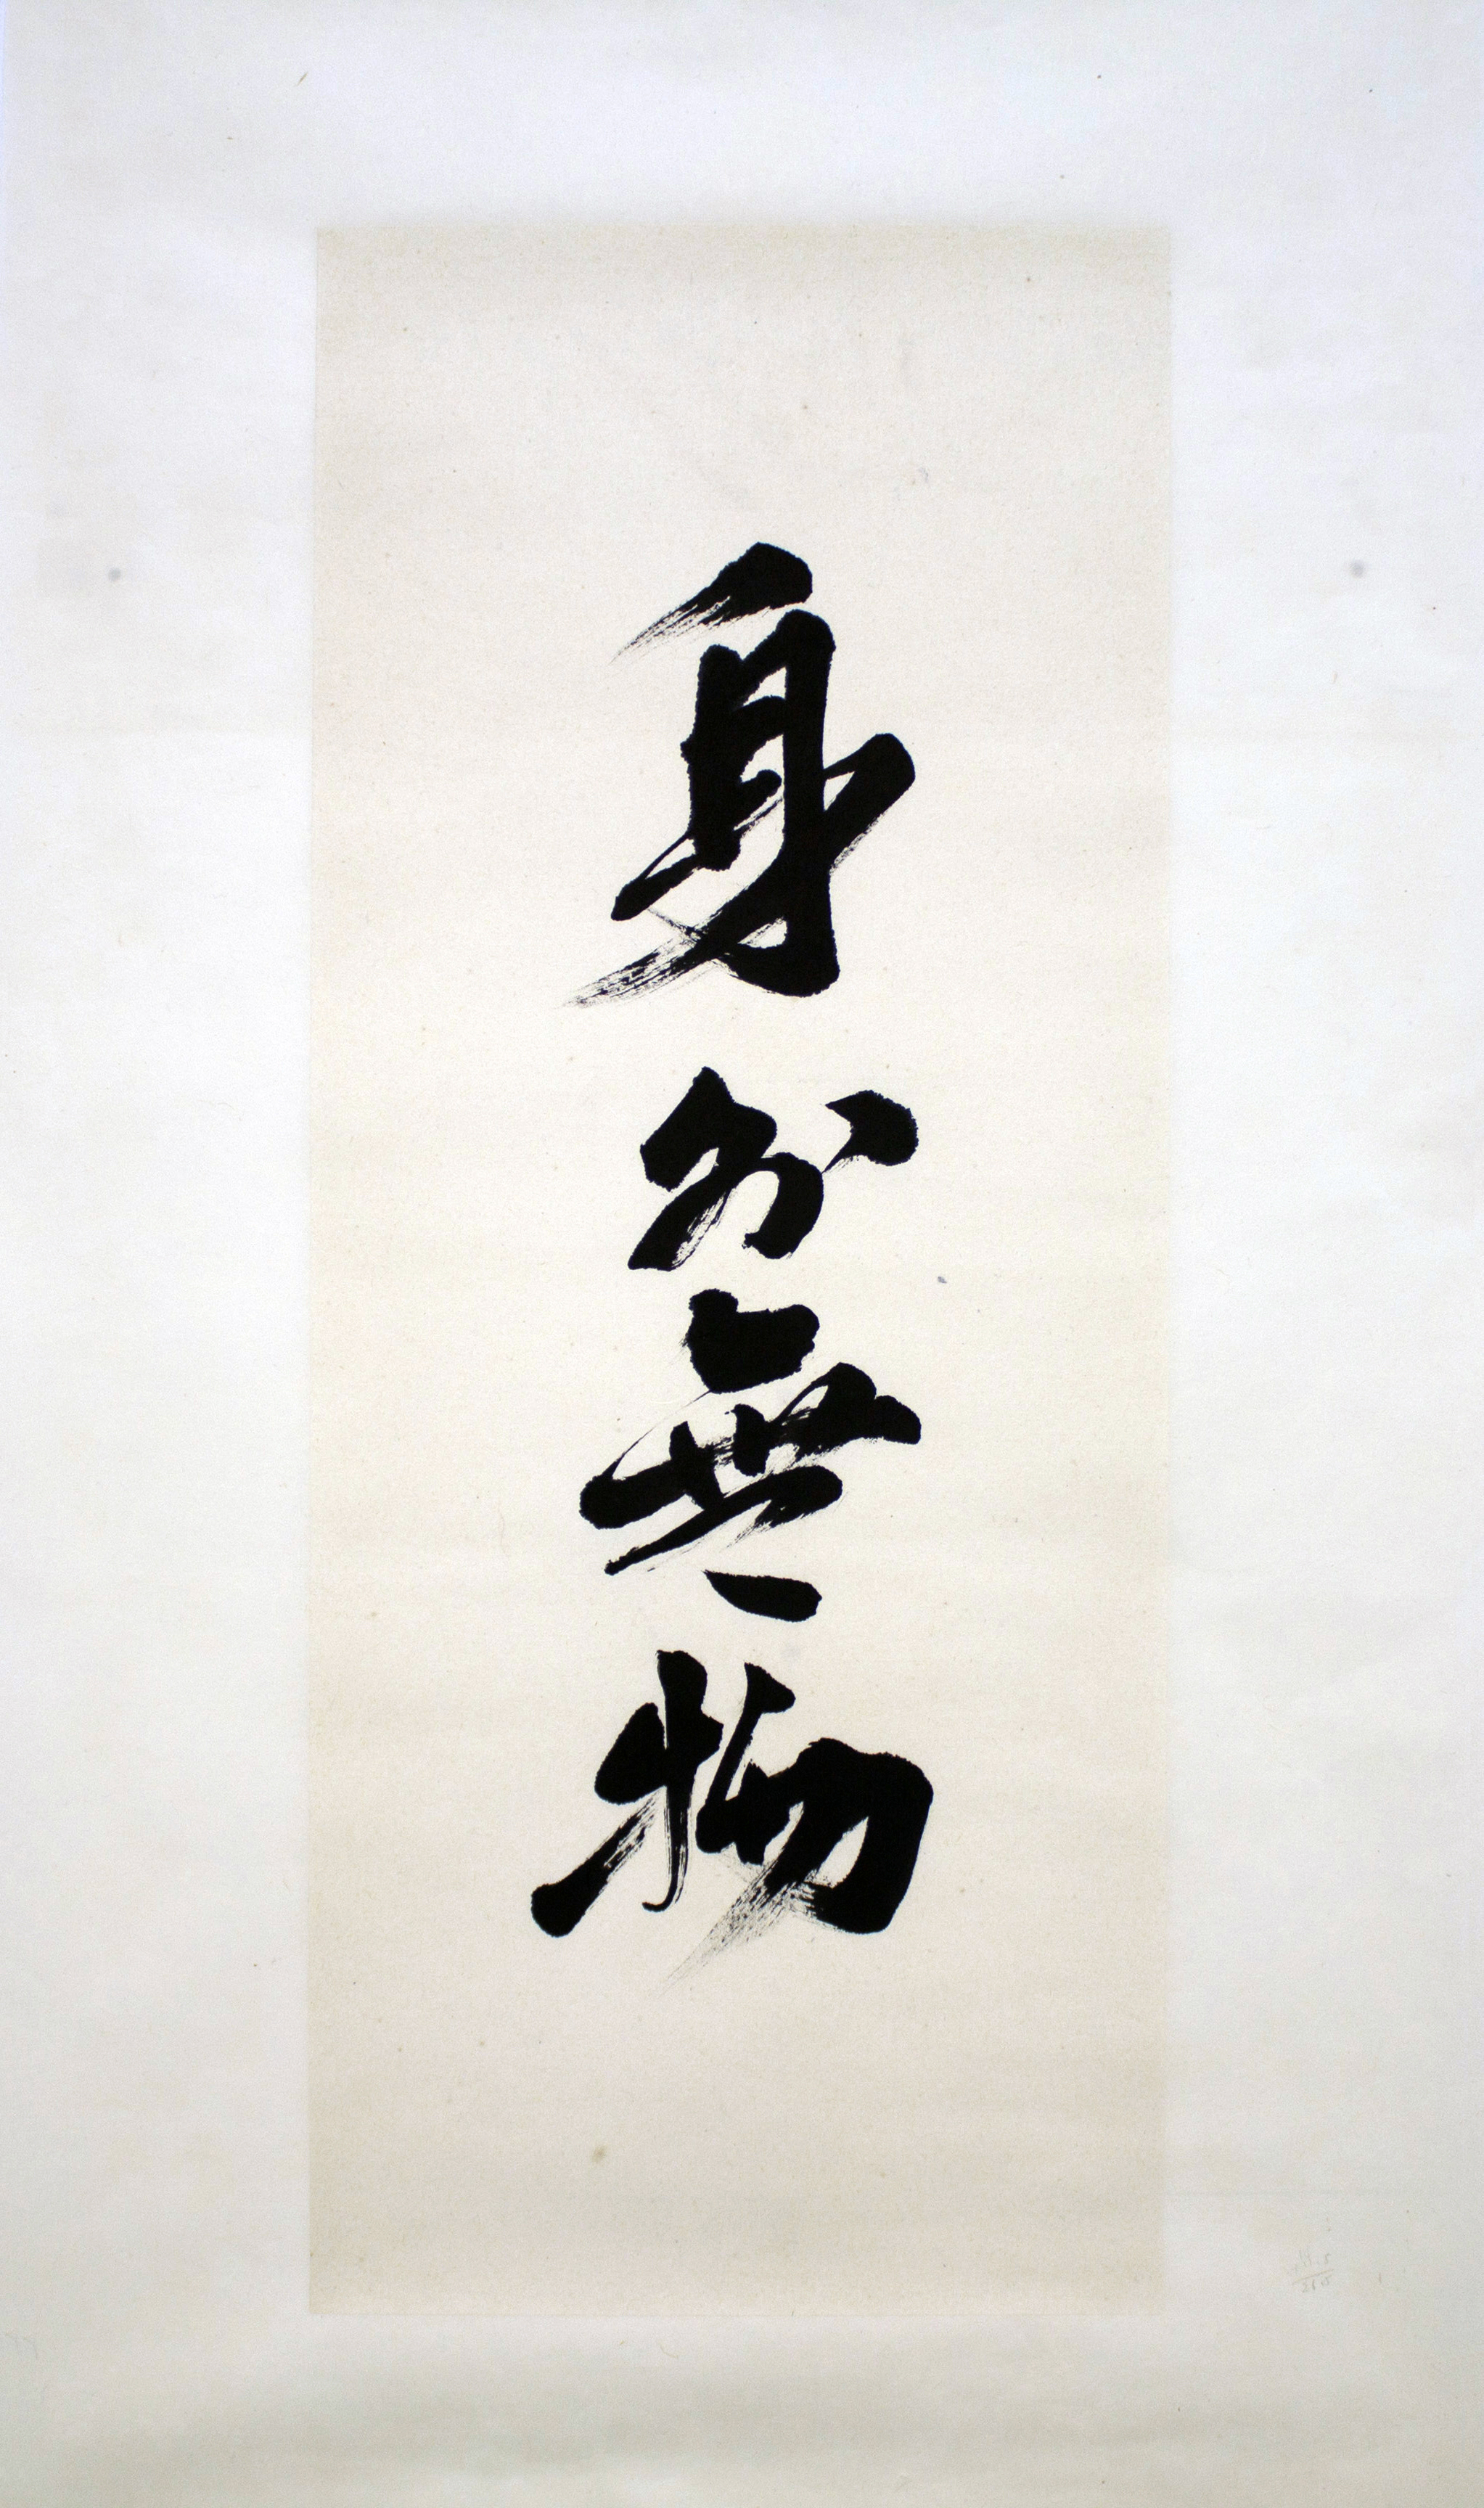 身外無物